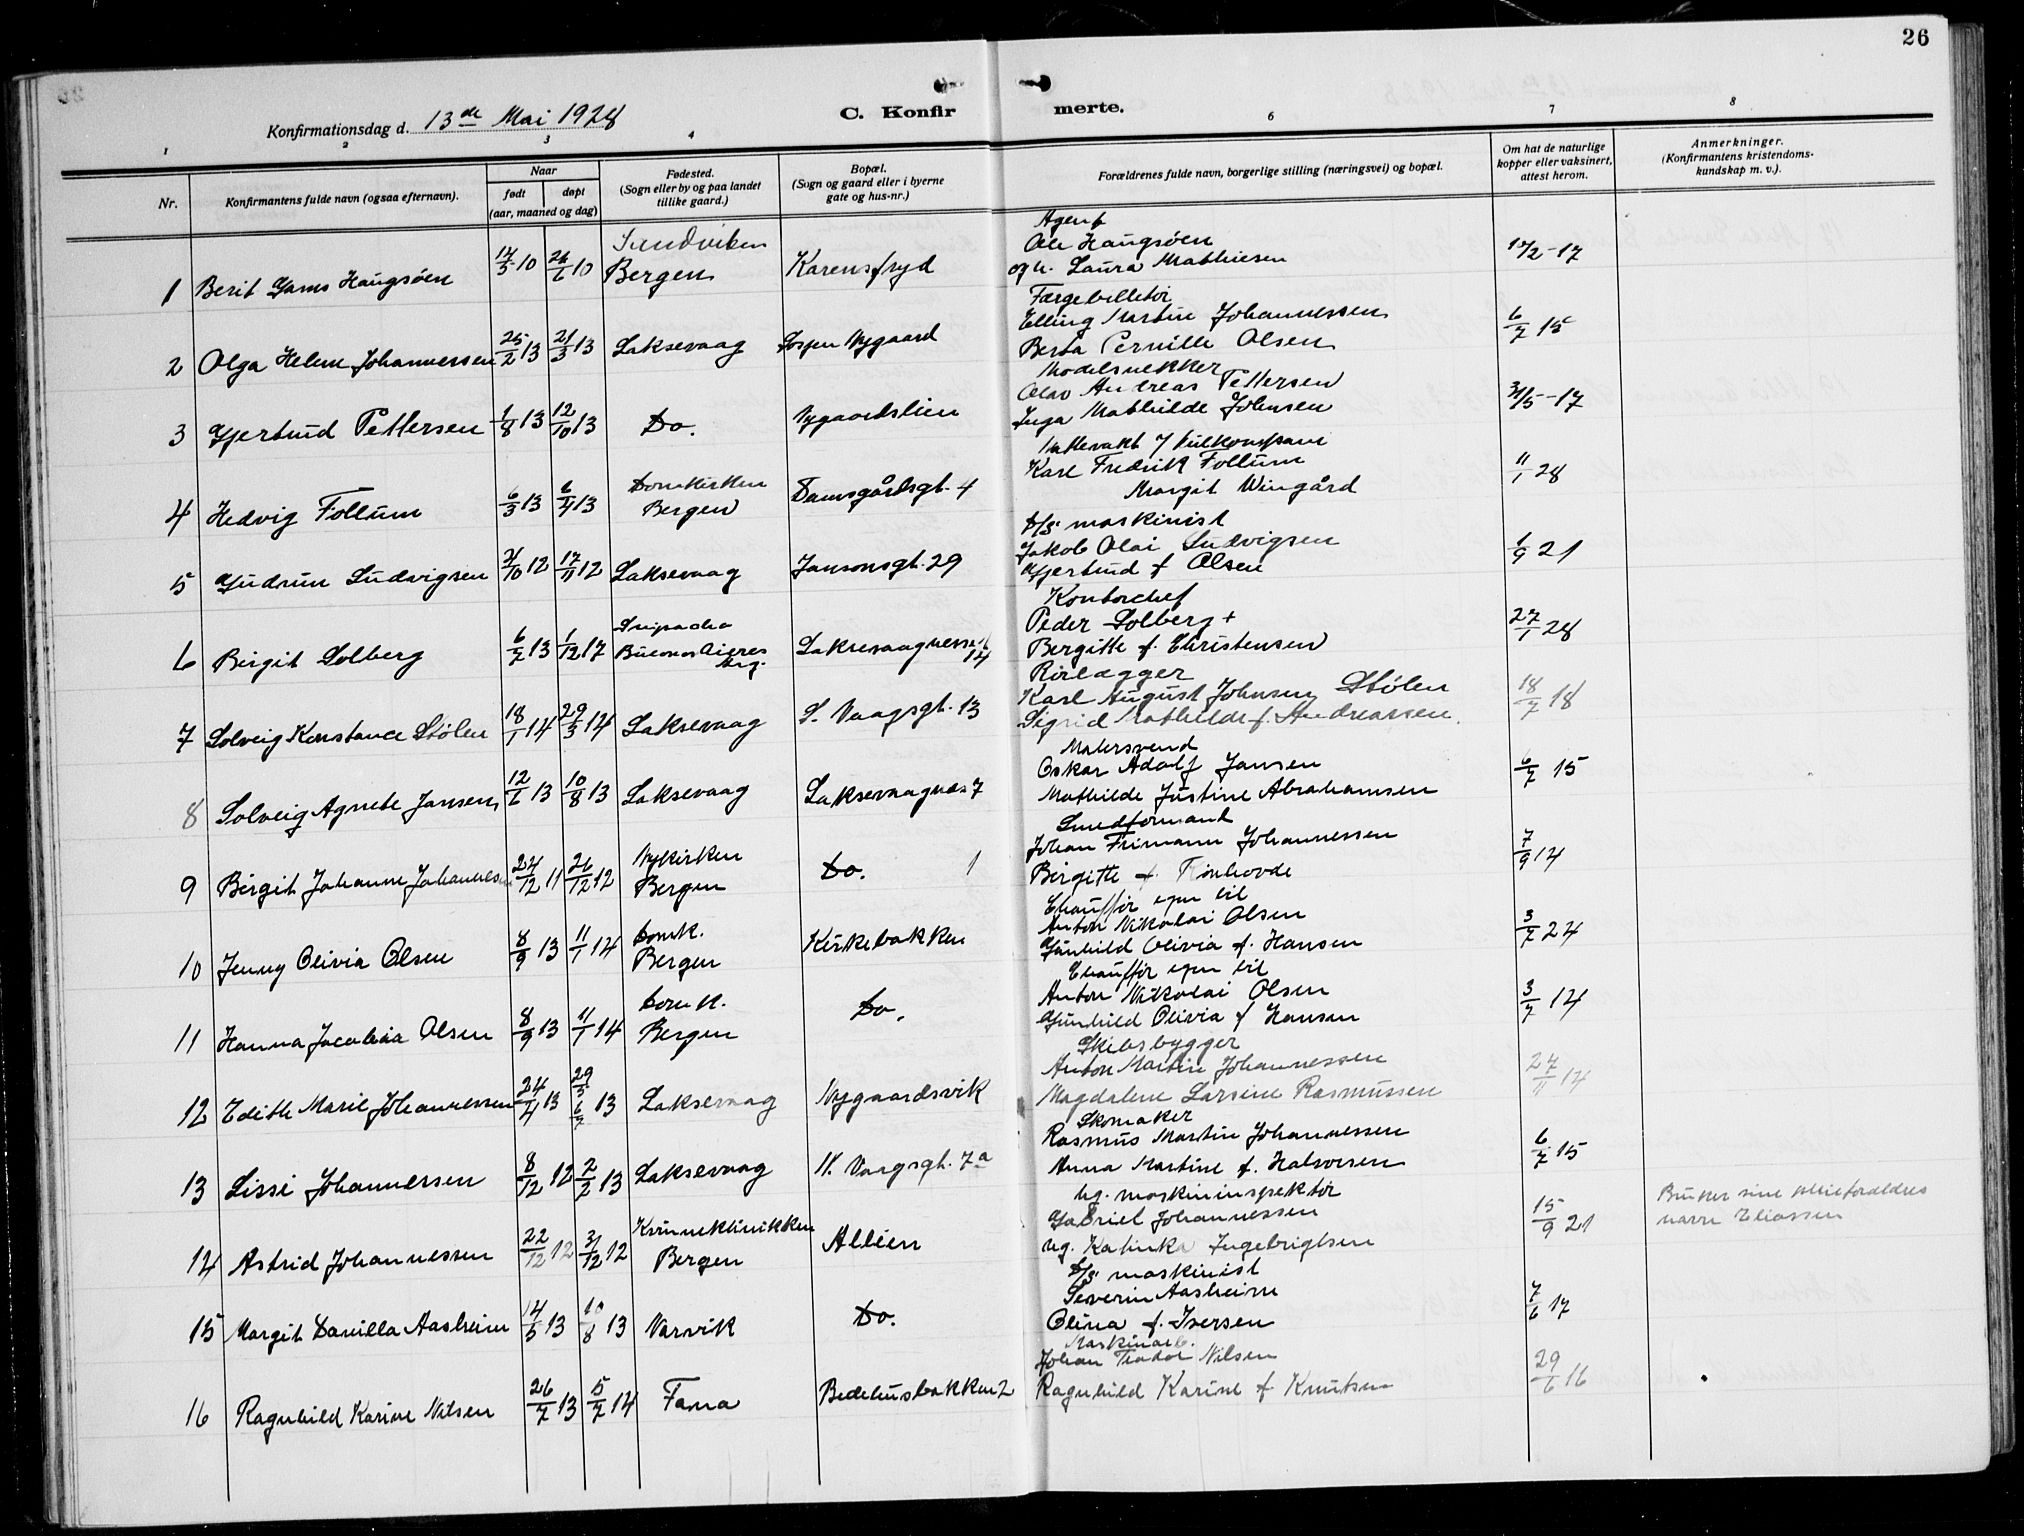 26
Konfirmationsdag d. 13de Mai 1928
C. Konfir merte.
1 2 3 4 6 7 8
Nr. Konfirmantens fulde navn (ogsaa efternavn). Naar født døpt (aar, maaned og dag) Fødested. (Sogn eller by og paa landet tillike gaard.) Bopæl. (Sogn og gaard eller i byerne gate og hus-nr.) Forældrenes fulde navn, borgerlige stilling (næringsvei) og bopæl. Om hat de naturlige kopper eller vaksinert, attest herom. Anmerkninger. (Konfirmantens kristendoms- kundskap m. v.).
Agent
Sandviken Ole Haugsøen
1 Berit Gams Haugsøen 17/5 10 26/6 10 Bergen Karensfryd og h. Laura Mathiesen 17/2-17
Færgebilletør
Elling Martin Johannessen
2 Olga Helene Johannessen 25/2 13 21/3 13 Laksevaag Nygaard Berta Pernille Olsen 6/7 15
Modelsnekker
Olav Andreas Pettersen
3 Gjertrud Pettersen 1/8 13 12/10 13 Do. Nygaardslien Inga Mathilde Johnsen 3/5-17
Nattevakt / kulkompani
Domkirken Karl Fredrik Follum
4 Hedvig Follum 6/3 13 6/4 13 Bergen Damsgårdsgt. 4 Margit Wingård 11/1 28
D/S maskinist
Jakob Olai Ludvigsen
5 Gudrun Ludvigsen 2/10 12 17/11 12 Laksevaag Jansonsgt. 29 Gjertrud f. Olsen 1/9 21
Kontorchef
Peder Solberg +
6 Birgit Solberg 6/7 13 1/12 17 Buenos Aires Arg. Laksevaagnesset 14 Bergitte f. Christensen 27/1 28
Rørlægger
Karl August Johnsen Stølen
7 Solveig Konstance Stølen 18/1 14 29/3 14 Laksevaag S. Vaagsgt. 13 Sigrid Mathilde f. Andreassen 18/7 18
Malersvend
Oskar Adolf Jansen
8 Solveig Agnete Jansen 12/6 13 10/8 13 Laksevaag Laksevaagnes 7 Mathilde Justine Abrahamsen 6/7 15
Smedformand
Nykirken Johan Frimann Johannessen
9 Birgit Johanne Johannessen 24/12 11 26/12 12 Bergen Do. 1 Birgitte f. Trønhovde 7/9 14
Chauffør egen bil
Domk. Anton Nikolai Olsen
10 Jenny Olivia Olsen 8/9 13 11/1 14 Bergen Kirkebakken Gunhild Olivia f. Hansen 3/7 24
Chauffør egen bil
Domk. Anton Nikolai Olsen
11 Hanna Jacobine Olsen 8/9 13 11/1 14 Bergen Do. Gunhild Olivia f Hansen 3/7 14
Skibsbygger
Anton Martin Johannessen
12 Edith Marie Johannessen 24/4 13 29/5 6/7 13 Laksevaag Nygaardsvik Magdalene Larsine Rasmussen 27/11 14
Skomaker
Rasmus Martin Johannessen
13 Lissi Johannessen 8/12 12 2/2 13 Laksevaag N. Vaagsgt. 7a Anna Martine f. Halvorsen 6/7 15
Ug. maskininspektør
Kvinneklinikken Gabriel Johannessen Bruker sine pleieforældres
14 Astrid Johannessen 22/12 12 31/12 12 Bergen Alléen Ug. Katinka Ingebrigtsen 15/9 21 navn Eliassen
D/S maskinist
Severin Aasheim
15 Margit Danilla Aasheim 14/5 13 10/8 13 Narvik Do. Olina f. Iversen 7/6 17
Maskinarb.
Johan Teodor Nilsen
16 Ragnhild Karine Nilsen 26/7 13 5/7 14 Fana Bedehusbakken 2 Ragnhild Karine f Knutsen 29/6 16